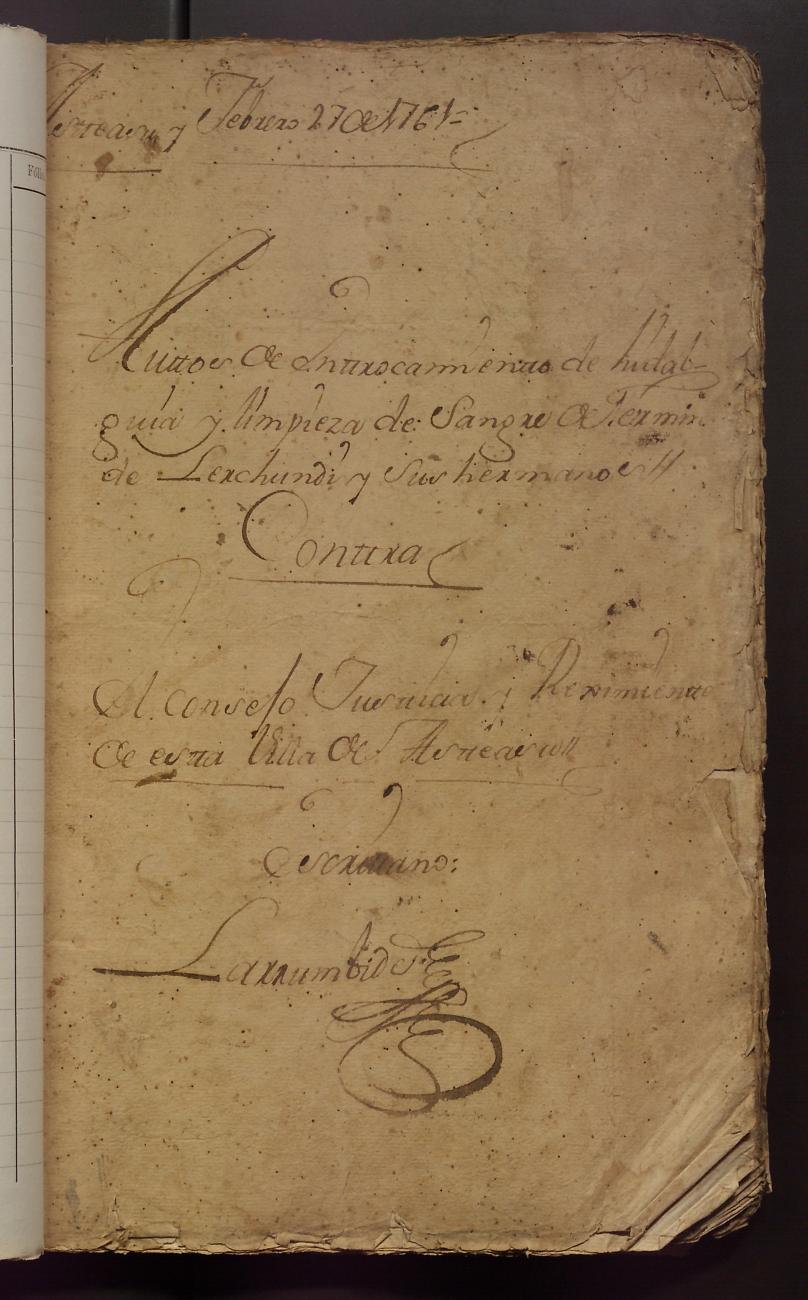 Asteasu y Febrero 27 de 1761=
Auttos de Entrocamiento de hidal-
guia y limpieza de Sangre de Fermin
de Lerchundi y sus hermanos //
Conttra
El Consejo Justicia y Reximiento
de estta Villa de Asteasu //
Escribano:
Larrumbide